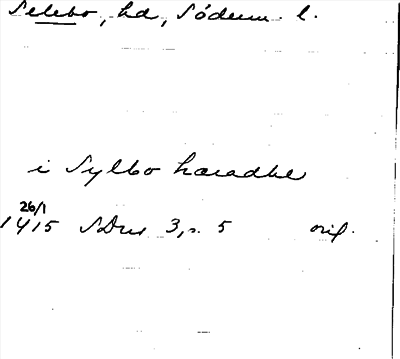 Selebo, hd, Söderm. l.
i Sylbo haradhe
26/1
1415 SDns 3, s. 5 orig.